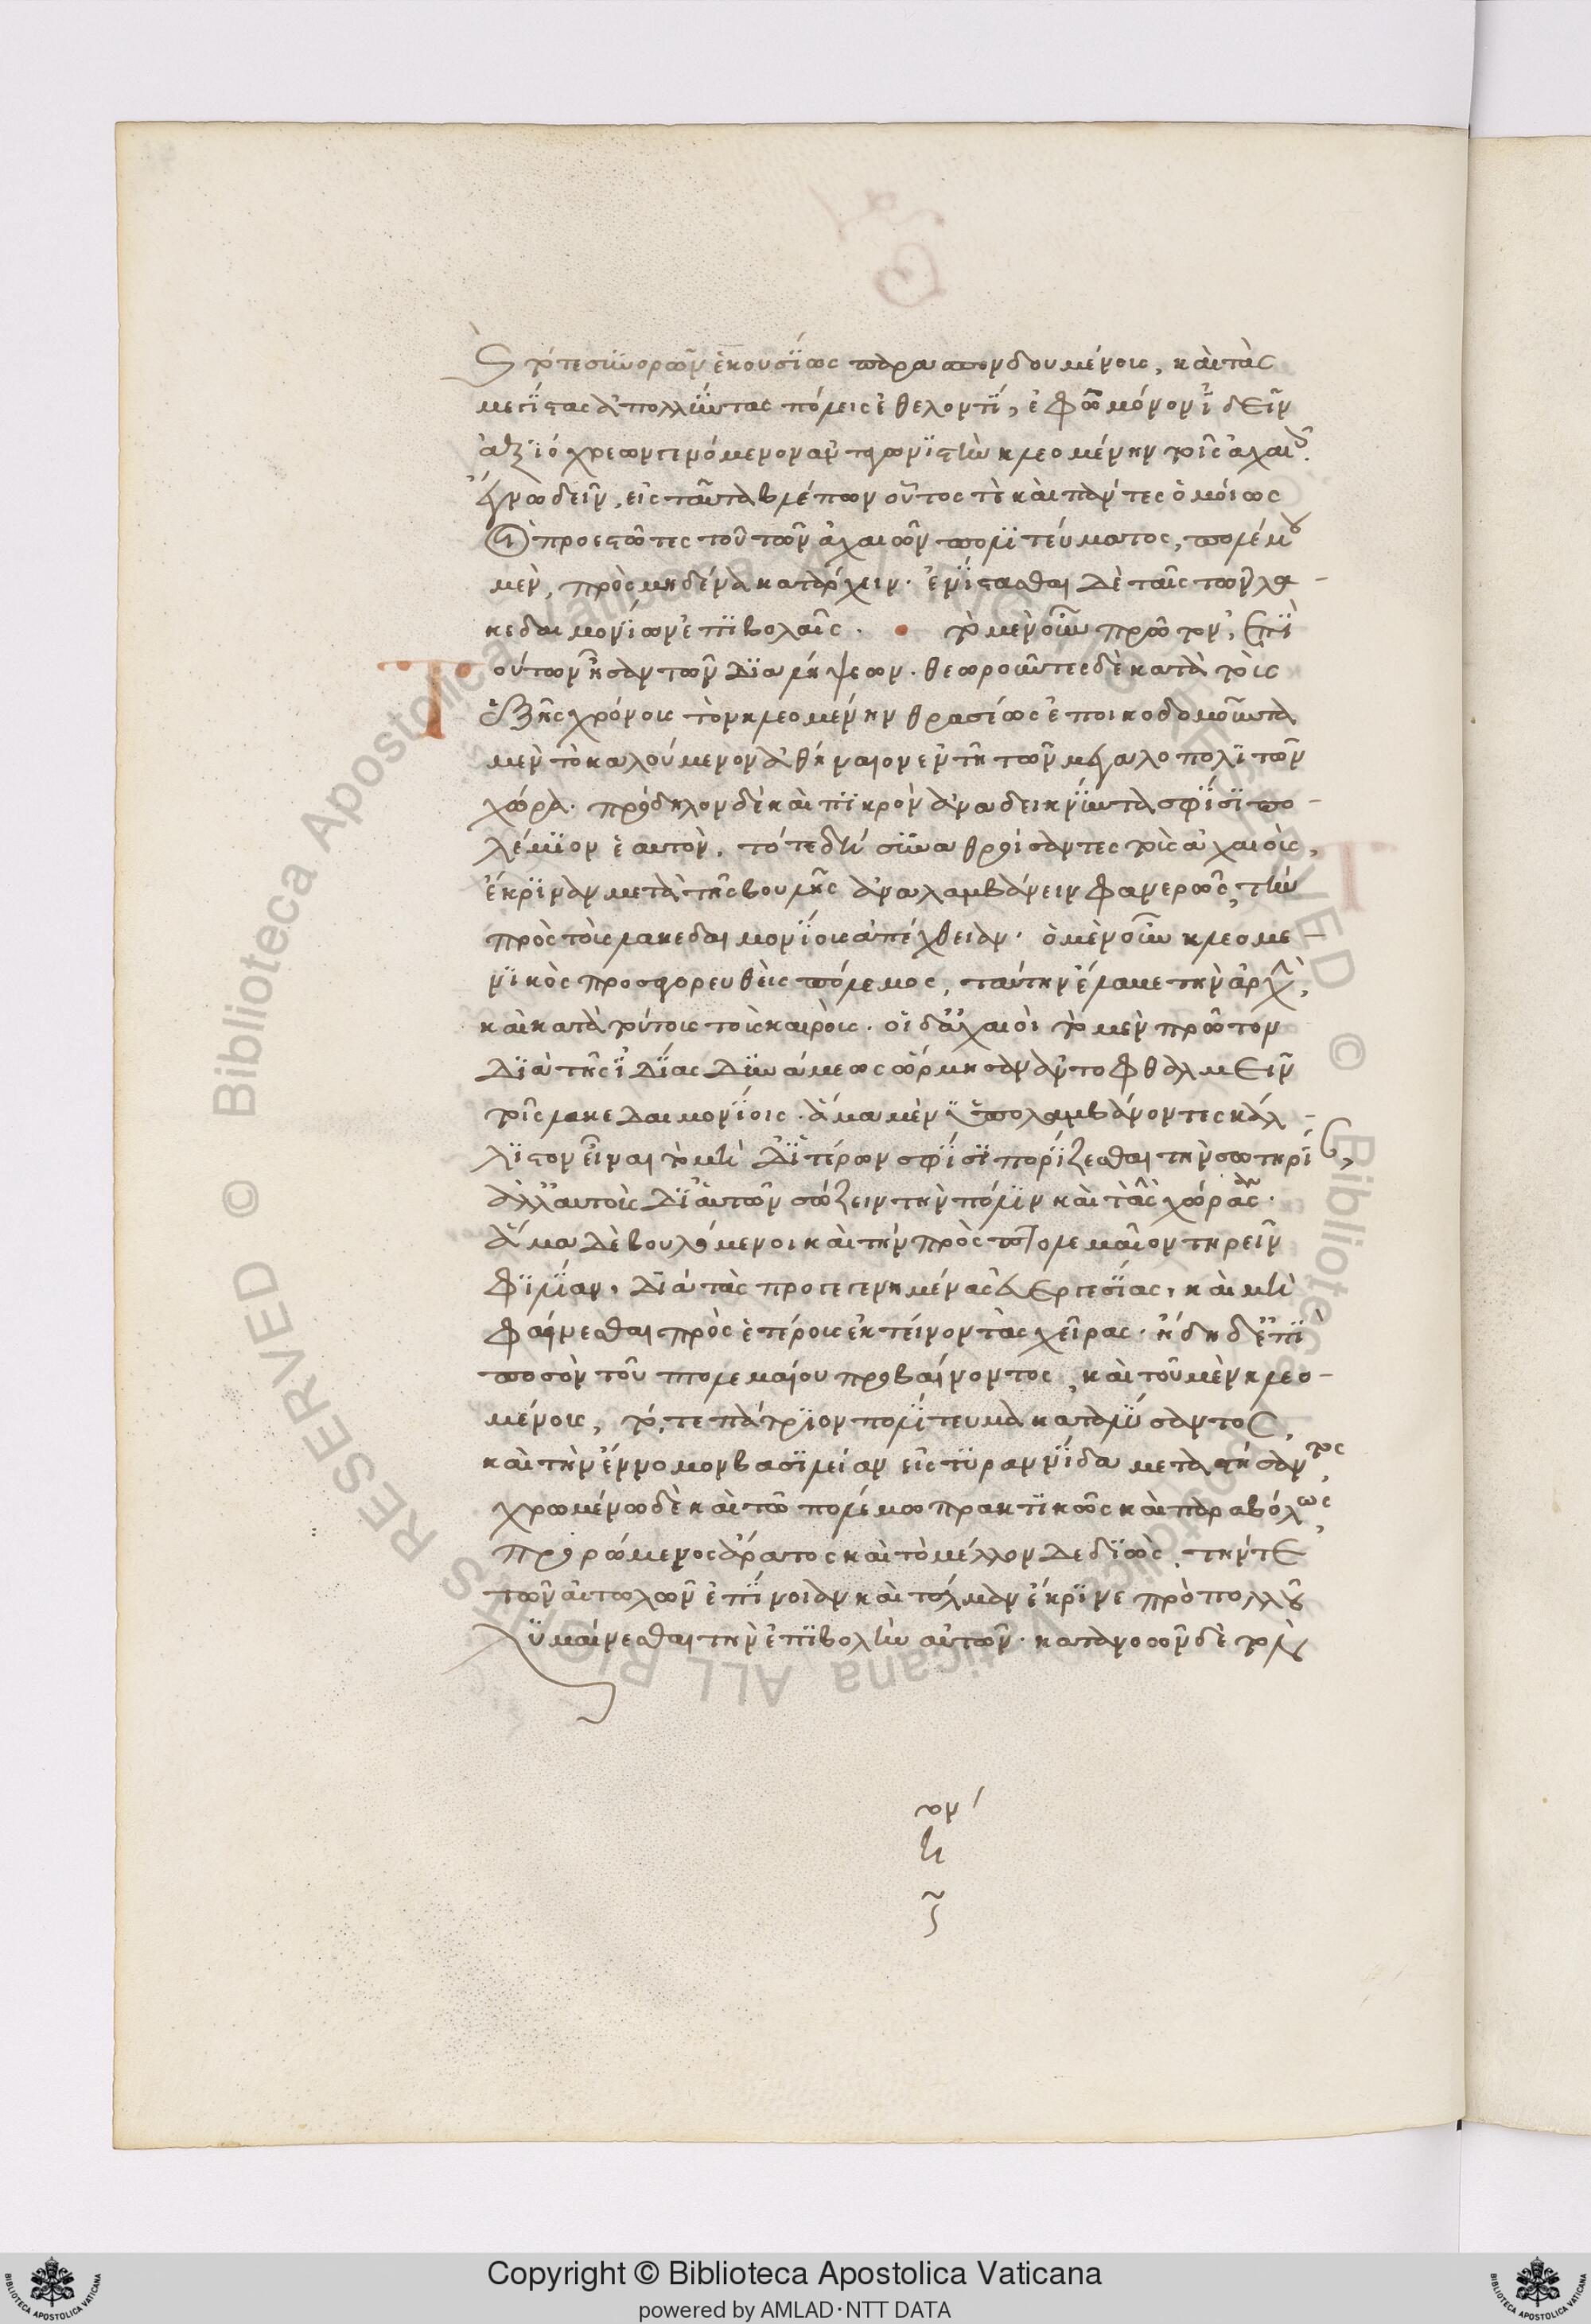 καὶ τότε συνορῶν ἑκουσίως παρασπονδουμένους, καὶ τὰς
μεγίστας ἀπολλύντας πόλεις ἐθελοντί, ἐφ' ᾧ μόνον ἰδεῖν
ἀξιόχρεων γενόμενον ἀνταγωνιστὴν κλεομένην τοῖς ἀχαιοῖς.
ἔγνω δεῖν, εἰς ταῦτα βλέπων οὗτός τε καὶ πάντες ὁμοίως
οἱ προεστῶτες τοῦ τῶν ἀχαιῶν πολιτεύματος, πολέμου
μὲν, πρὸς μηδένα κατάρχειν. ἐνίστασθαι δὲ ταῖς τῶν λα-
κεδαιμονίων ἐπιβολαῖς. τὸ μὲν οὖν πρῶτον, ἐπὶ
Τούτων ἦσαν τῶν διαλήψεων. θεωροῦντες δὲ κατὰ τοὺς
ἑξῆς χρόνους τὸν κλεομένην θρασέως ἐποικοδομοῦντα
μὲν τὸ καλούμενον ἀθήναιον ἐν τῇ τῶν μεγαλοπολιτῶν
χώρᾳ. πρόδηλον δὲ καὶ πικρὸν ἀναδεικνύντα σφίσι πο-
λέμιον ἑαυτὸν, τότε δὴ συναθροίσαντες τοὺς ἀχαιοὺς,
ἔκριναν μετὰ τῆς βουλῆς ἀναλαμβάνειν φανερῶς, τὴν
πρὸς τοὺς λακεδαιμονίους ἀπέχθειαν. ὁ μὲν οὖν κλεομε-
νικὸς προσαγορευθεὶς πόλεμος, ταύτην ἔλαβε τὴν ἀρχὴν,
καὶ κατὰ τούτους τοὺς καιρούς. οἱ δ' ἀχαιοὶ τὸ μὲν πρῶτον
διὰ τῆς ἰδίας δυνάμεως ὥρμησαν ἀντοφθαλμεῖν
τοῖς λακεδαιμονίοις. ἅμα μὲν ὑπολαμβάνοντες κάλ-
λιστον εἶναι τὸ μὴ δι' ἑτέρων σφίσι πορίζεσθαι τὴν σωτηρίαν,
ἀλλ' αὐτοὺς δι' αὑτῶν σώζειν τὴν πόλιν καὶ τὰς χώρας.
ἅμα δὲ βουλόμενοι καὶ τὴν πρὸς πτολεμαῖον τηρεῖν
φιλίαν, διὰ τὰς προγεγενημένας εὐεργεσίας, καὶ μὴ
φαίνεσθαι πρὸς ἑτέρους ἐκτείνοντας χεῖρας. ἤδη δ' ἐπὶ
ποσὸν τοῦ πτολεμαίου προβαίνοντος, καὶ τοῦ μὲν κλεο-
μένους, τό, τε πάτριον πολίτευμα καταλύσαντος,
καὶ τὴν ἔννομον βασιλείαν εἰς τυραννίδα μεταστήσαντος,
χρωμένῳ δὲ καὶ τῷ πολέμῳ πρακτικῶς καὶ παραβόλως,
προρώμενος ἄρατος καὶ τὸ μέλλον δεδιὼς, τήν τε
τῶν αἰτωλῶν ἐπίνοιαν καὶ τόλμαν ἔκρινε πρὸ πολλοῦ
λυμαίνεσθαι τὴν ἐπιβολὴν αὐτῶν. κατανοῶν δὲ τὸν